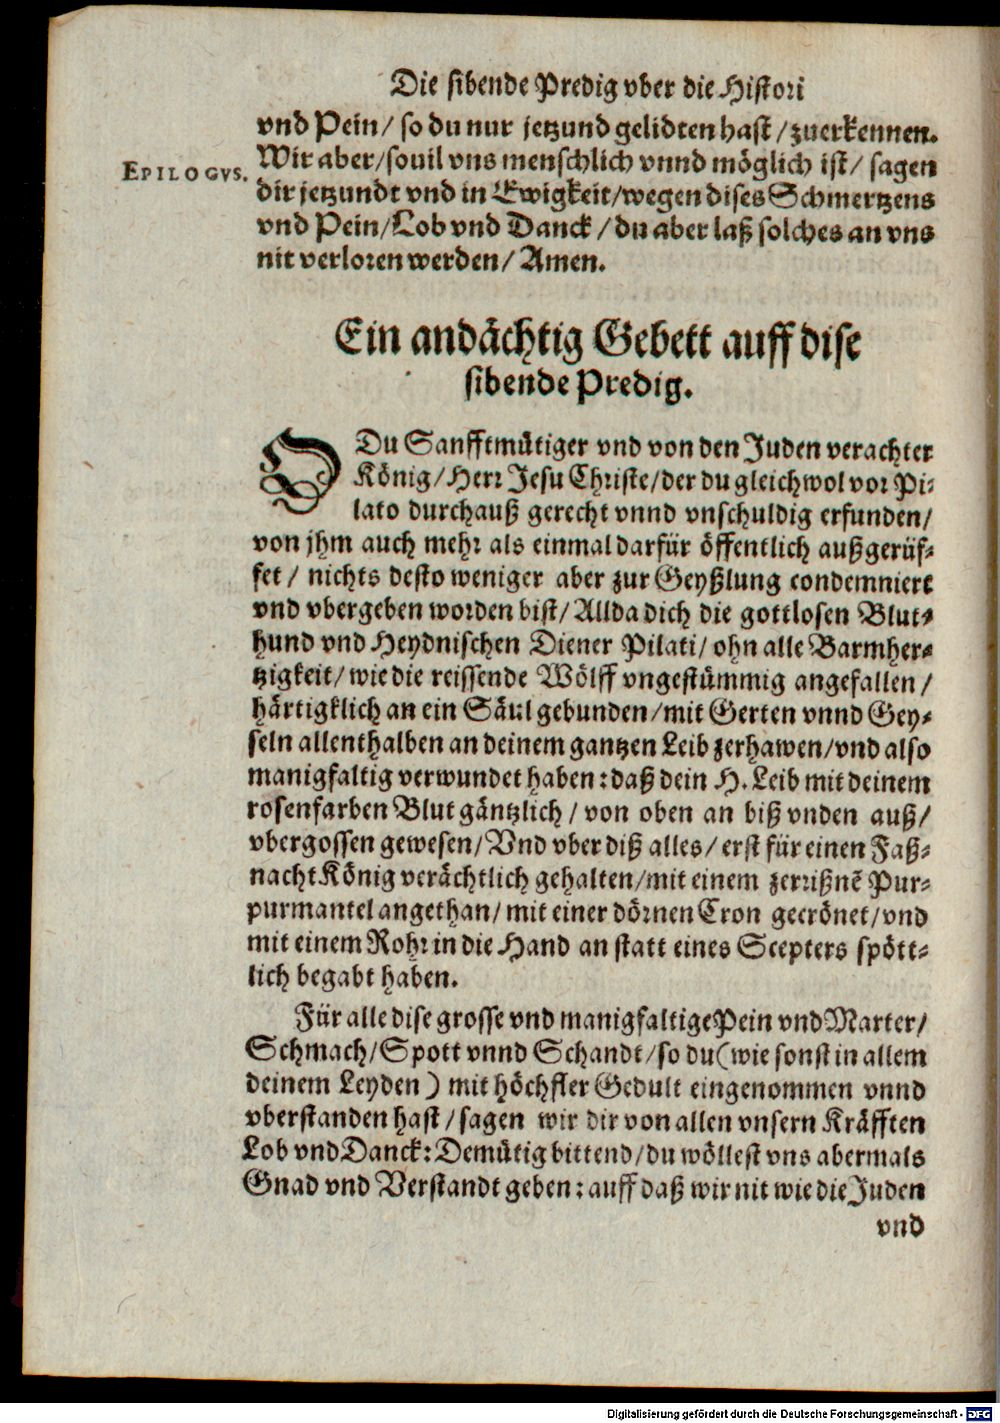 Die sibende Predig vber die Histori
vnd Pein/ so du nur jetzund gelidten hast/ zuerkennen.
EPILOGVS.
Wir aber/ souil vns menschlich vnnd möglich ist/ sagen
dir jetzundt vnd in Ewigkeit/ wegen dises Schmertzens
vnd Pein/ Lob vnd Danck/ du aber laß solches an vns
nit verloren werden/ Amen.
Ein andächtig Gebett auff dise
sibende Predig.
O Du Sanfftmütiger vnd von den Juden verachter
König/ Herr Jesu Christe/ der du gleichwol vor Pi-
lato durchauß gerecht vnnd vnschuldig erfunden/
von jhm auch mehr als einmal darfür öffentlich außgerüf-
fet/ nichts desto weniger aber zur Geyßlung condemniert
vnd vbergeben worden bist/ Allda dich die gottlosen Blut-
hund vnd Heydnischen Diener Pilati/ ohn alle Barmher-
tzigkeit/ wie die reissende Wölff vngestümmig angefallen/
härtigklich an ein Säul gebunden/ mit Gerten vnnd Gey-
seln allenthalben an deinem gantzen Leib zerhawen/ vnd also
manigfaltig verwundet haben: daß dein H. Leib mit deinem
rosenfarben Blut gäntzlich/ von oben an biß vnden auß/
vbergossen gewesen/ Vnd vber diß alles/ erst für einen Faß-
nacht König verächtlich gehalten/ mit einem zerrißnē Pur-
purmantel angethan/ mit einer dörnen Cron gecrönet/ vnd
mit einem Rohr in die Hand an statt eines Scepters spött-
lich begabt haben.
Für alle dise grosse vnd manigfaltige Pein vnd Marter/
Schmach/ Spott vnnd Schandt/ so du (wie sonst in allem
deinem Leyden) mit höchster Gedult eingenommen vnnd
vberstanden hast/ sagen wir dir von allen vnsern Kräfften
Lob vnd Danck: Demütig bittend/ du wöllest vns abermals
Gnad vnd Verstandt geben: auff daß wir nit wie die Juden
vnd
Digitalisierung gefördert durch die Deutsche Forschungsgemeinschaft - DFG